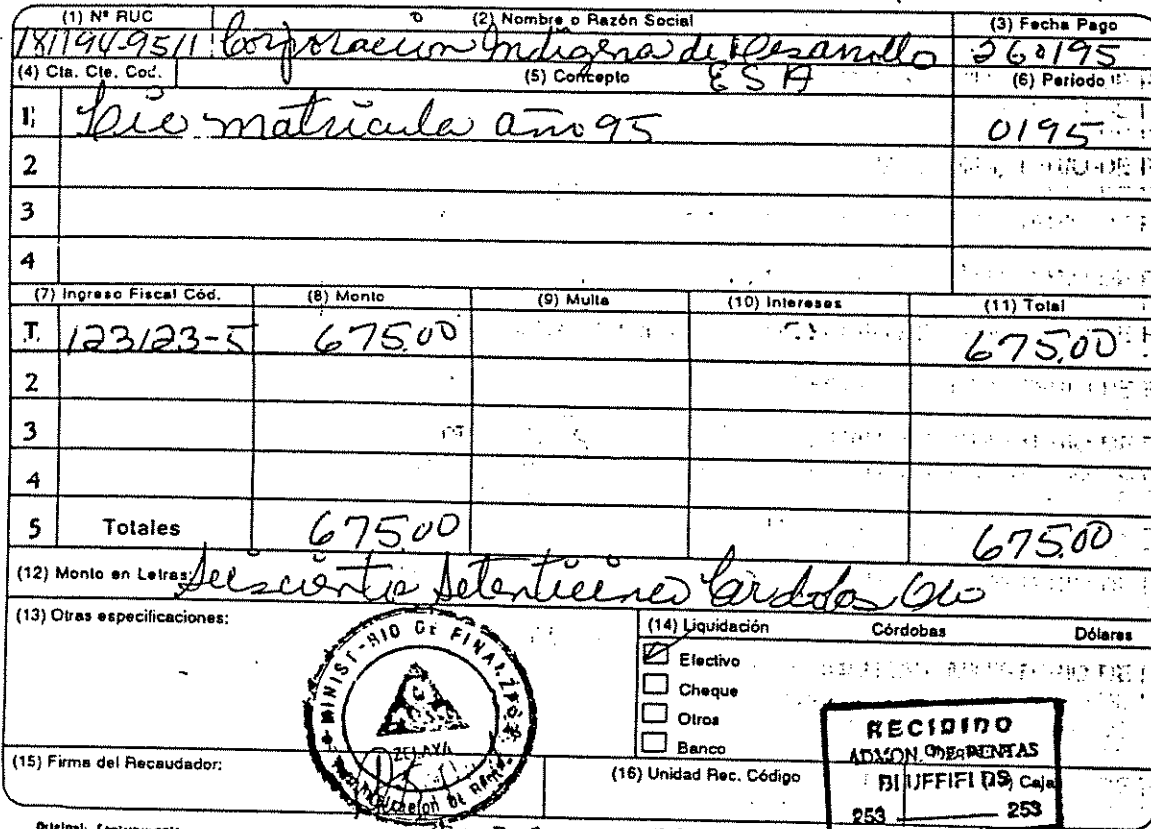 (1) Nº RUC (2) Nombre o Razón Social (3) Fecha Pago
181194-9511 Corporacion Indigena de Desarrollo 260195
ESA
(4) Cta. Cte. Cod. (5) Concepto (6) Periodo
1 matricula año 95 0195
2
3
4
(7) Ingreso Fiscal Cód. (8) Monto (9) Multa (10) Intereses (11) Total
1 123123-5 675.00 675.00
2
3
4
5 Totales 675.00 675.00
(12) Monto en Letras:
(13) Otras especificaciones:
MINISTERIO DE FINANZAS
ZELAYA
(14) Liquidación Córdobas Dólares
Efectivo
Cheque
Otros
Banco
RECIBIDO
ADMON. DE RENTAS
BLUEFIELDS Caja
253 253
(15) Firma del Recaudador: (16) Unidad Rec. Código